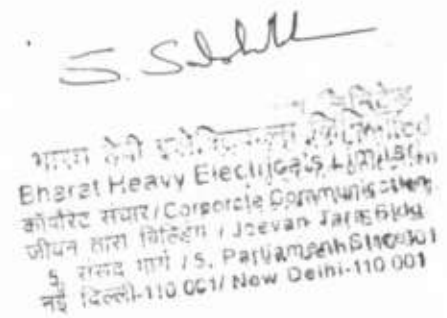 S.
भारत हेवी
Bharat Heavy Electricals Limited
कॉर्पोरेट संचार / Corporate Communication
जीवन तारा बिल्डिंग / Jeevan Tara Bldg
5, संसद मार्ग / 5, Parliament Street
नई दिल्ली-110 001/ New Delhi-110 001